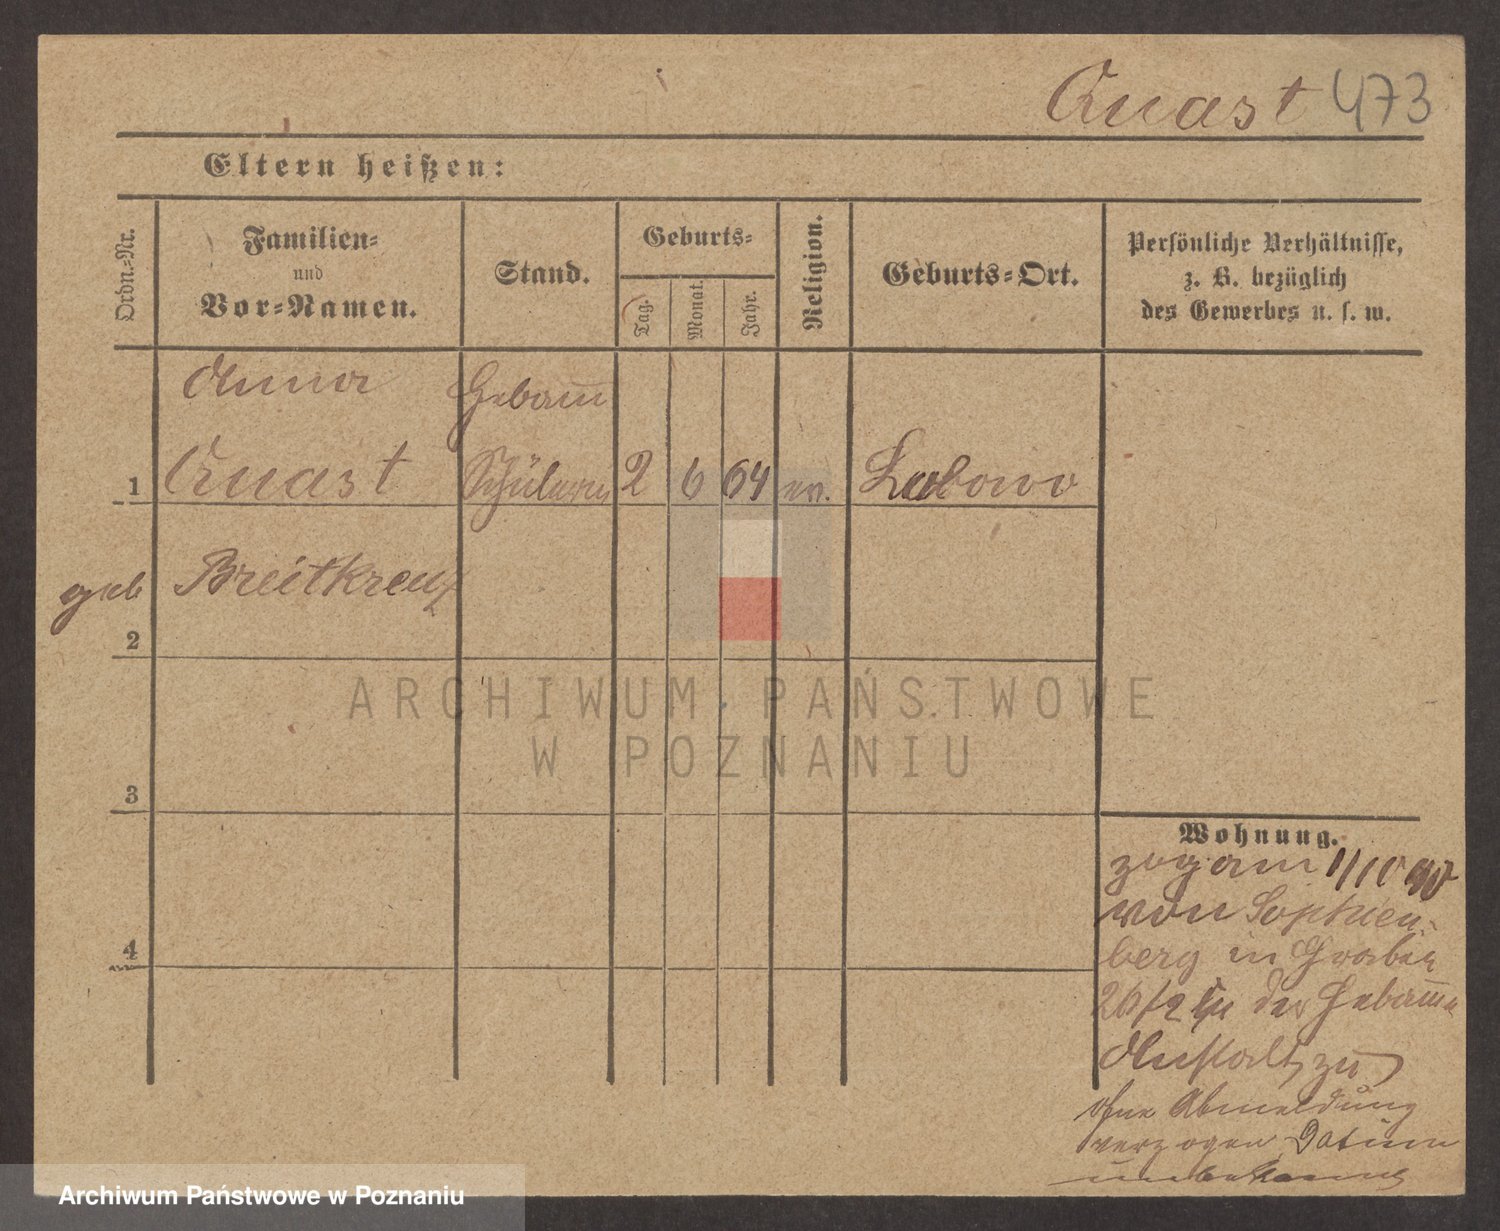 Quast 473
Eltern heißen:
Ordn.-Nr.
Familien-
und
Vor-Namen.
Stand.
Geburts-
Tag.
Monat.
Jahr.
Religion.
Geburts-Ort.
Persönliche Verhältnisse,
z. B. bezüglich
des Gewerbes u. s. w.
Anna
Hebam̅
1 Quast Schülerin 2 6 64 ev. Labowo
geb Breitkreuz
2
ARCHIWUM PAŃSTWOWE
W POZNANIU
3
Wohnung.
zog am 1/10 90
von Sophien-
berg in Graben
26/2 in der Hebam̅en
4
Anstalt zu
ohne Abmeldung
verzogen, Datum
unbekannt
Archiwum Państwowe w Poznaniu